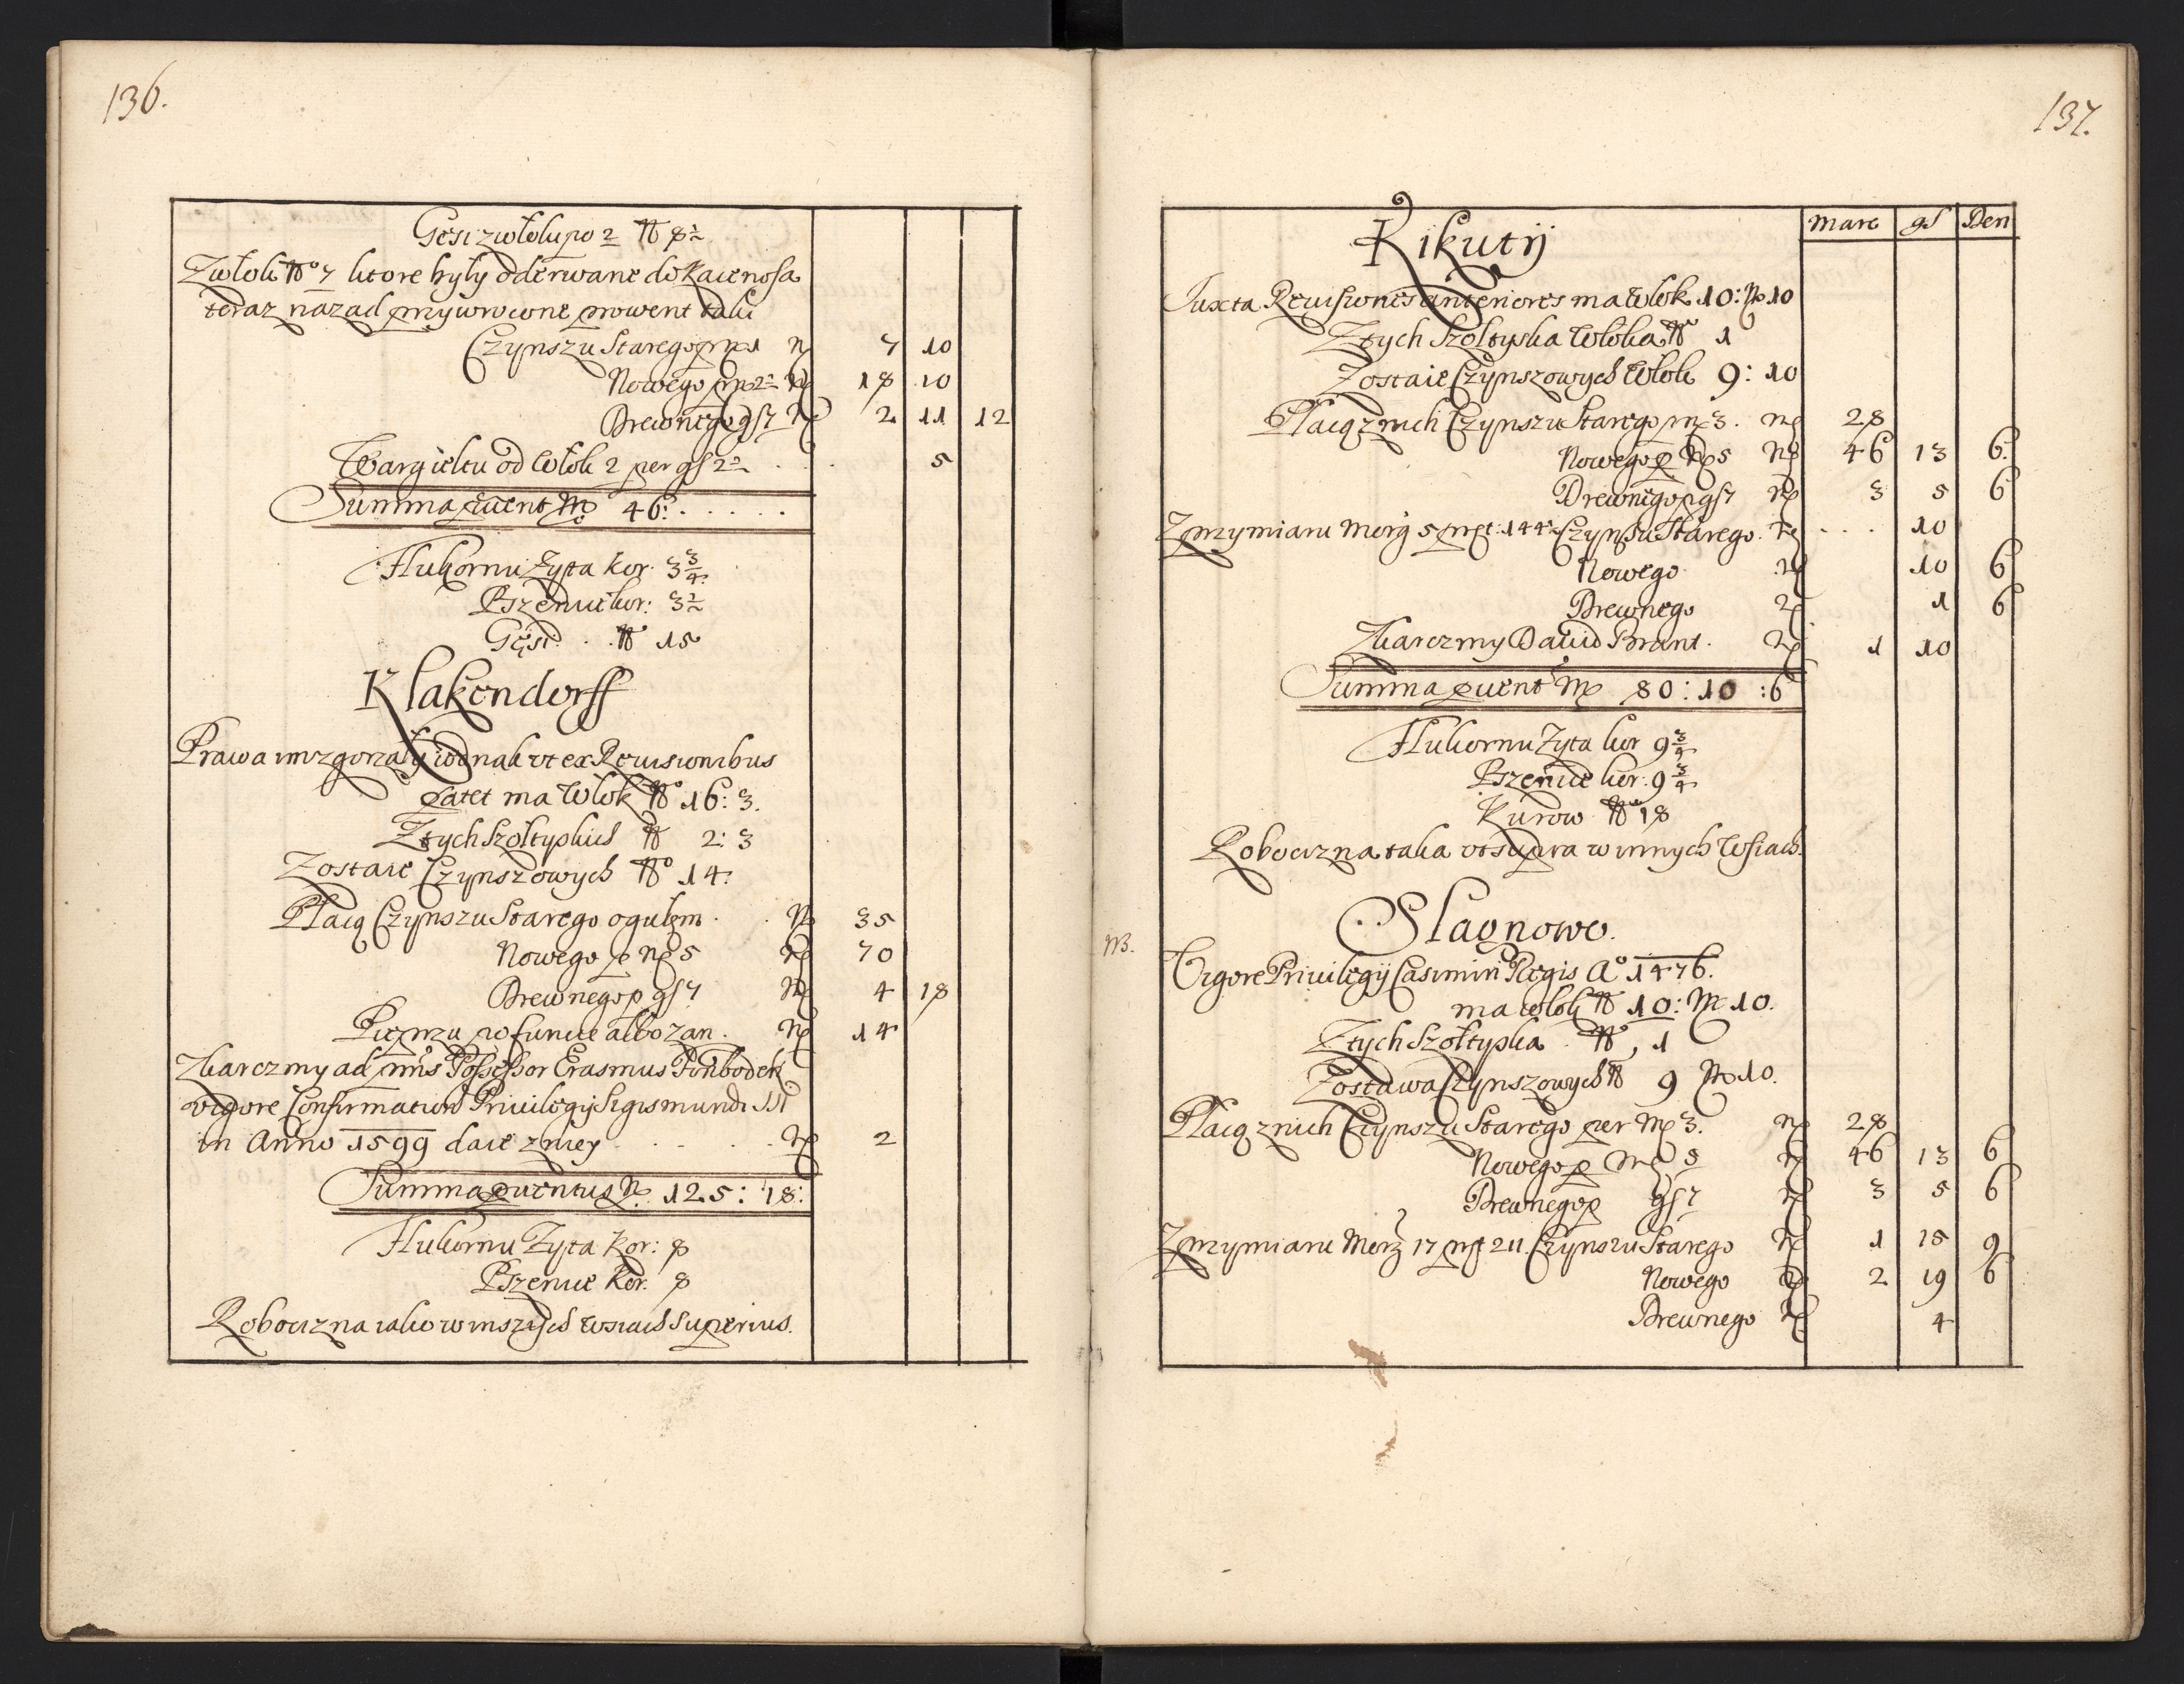 136.
Gęsi z włoki po 2 No 8½
Z włok No 7 ktore były oderwane do Kaienosa
teraz nazad przywrocone prowent taki
Czynszu Starego pr mr 1 mr 7 10
Nowego pr m 2½ mr 18 10
Drewnego gs 7 mr 2 11 12
Wargieltu od Włok 2 per gs 2½ . . 5
Summa prouent M 46: . . . . .
Hukornu Żyta kor. 3¾
Pszenice kor: 3½
Gęsi . . No 15
Klakendorff
Prawa im zgorzały iednak vt ex Reuisionibus
patet ma Włok No 16: 3.
Z tych Szołtyskich No 2: 3
Zostaie Czynszowych No 14.
Płacą Czynszu Starego ogułem . . mr 35
Nowego p mr 5 mr 70
Drewnego p gs 7 mr 4 18
Pieprzu po funcie albo zań . mr 14
Z karczmy ad pnns Possessor Erasmus
vigore Confirmation Priuilegij Sigismundi III
in Anno 1599 daie z niey . . . . mr 2
Summa prouentus M. 125: 18:
Hukornu Zyta Kor: 8
Pszenice Kor. 8
Robocizna iako w inszych wsiach Superius.
137.
Marc gs Den
Kikuty
Juxta Reuisiones anteriores ma Włok 10: M 10
Z tych Szołtyska Włoka No 1
Zostaie Czynszowych Włok 9: 10
Płacą z nich Czynszu Starego p mr 3. mr 28
Nowego p mr 5 mr 46 13 6.
Drewnego p gs 7 mr 3 5 6
Z przymiaru Morg 5 pręt: 144½ Czynszu Starego. mr . . . 10
Nowego mr 10 6
Drewnego mr 1 6
Z karczmy Dawid Brant. mr 1 10
Summa prouent M 80: 10 :6
Hukornu Żyta kor 9¾
Pszenice kor: 9¾
Kurow No 18
Robocizna taka vt supra w innych Wsiach.
Slagnowo.
NB.
Vigore Priuilegij Casimiri Regis Ao 1476.
ma włok No 10: M 10.
Z tych Szołtyska . No 1
Zostawa Czynszowych No 9 M 10.
Płacą z nich Czynszu Starego per M 3. mr 28
Nowego p mr 5 mr 46 13 6
Drewnego p gs 7 mr 3 5 6
Z przymiaru Morg 17 pręt 211. Czynszu Starego mr 1 15 9
Nowego mr 2 19 6
Drewnego mr 4